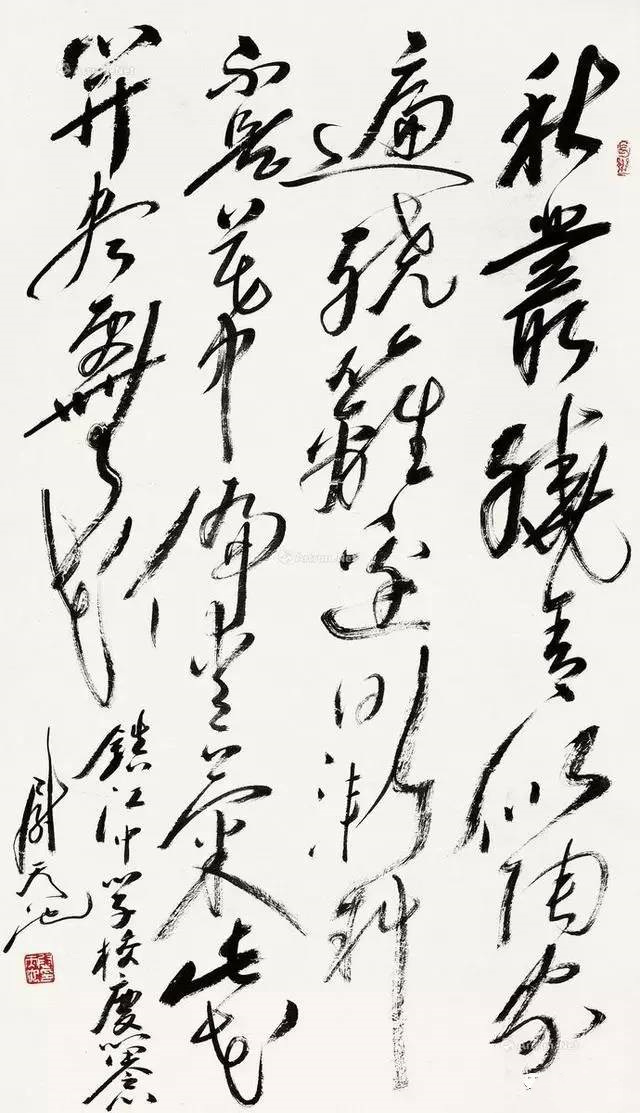 秋叢繞舍似陶家
遍繞籬邊日漸斜
不是花中偏愛菊此花
開尽更無花
鎮江中学校慶
尉天池
Artron.Net